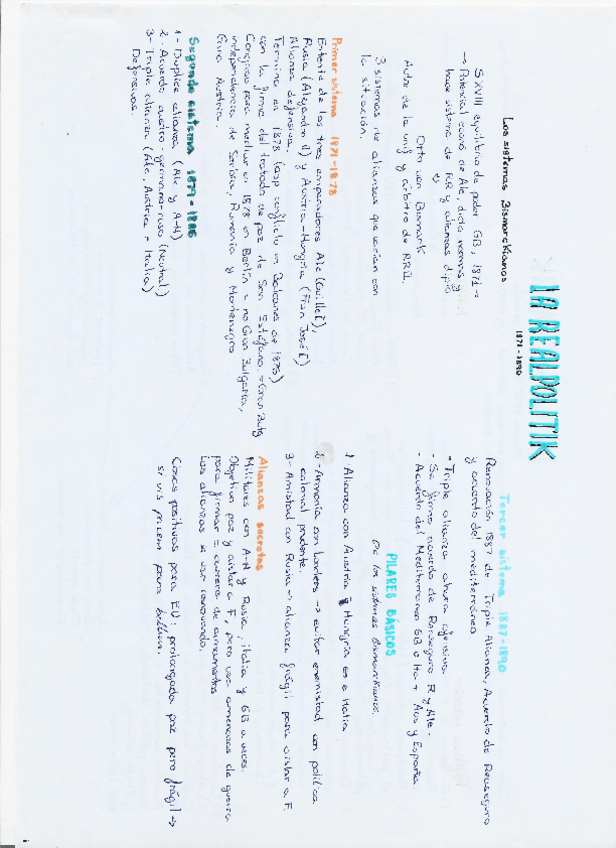 LA REALPOLITIK
1871-1890
Los sistemas Bismarckianos
SXVIII equilibrio de poder GB, 1871 →
→ Potencial econó de Ale, dicta normas y
hace sistema de RR y alianzas diplo
Otto von Bismark
es
Autor de la unif y árbitro de RRII.
3 sistemas de alianzas que varian con
la situación.
Primer sistema 1871-1878
Entente de los tres emperadores Ale (Guille I),
Rusia (Alejandro II) y Austria-Hungría (Fran José I)
Alianza defensiva.
Termina en 1878 (por conflicto en Balcanes de 1875)
con la firma del tratado de paz de San Estéfano → Gran Bulg
Congreso para mediar en 1878 en Berlín → no Gran Bulgaria,
independencia de Serbia, Rumanía y Montenegro
Gira Austria.
Segundo sistema 1879-1886
1- Duplice alianza (Ale y A-H)
2- Acuerdo austro-germano-ruso (Neutral)
3- Triple alianza (Ale, Austria + Italia)
Defensivas.
Tercer sistema 1887-1890
Renovación 1887 de Triple Alianza, Acuerdo de Reaseguro
y acuerdo del mediterráneo
- Triple alianza ahora ofensiva.
- Se firma acuerdo de Reaseguro R y Ale.
- Acuerdo del Mediterráneo GB e Ita + Aus y España
PILARES BÁSICOS
de los sistemas bismarckianos.
1 Alianza con Austria Hungría es e Italia
2-Armonía con Londres → evitar enemistad con política
colonial prudente.
3- Amistad con Rusia → alianza frágil para aislar a F.
Alianzas secretas
Militares con A-H y Rusia, italia y GB a veces.
Objetivo paz y aislar a F, pero usa amenazas de guerra
para firmar = carrera de armamentos
Las alianzas se van renovando.
Cosas positivas para EU: prolongada paz pero frágil →
si vis pacem para bellum.